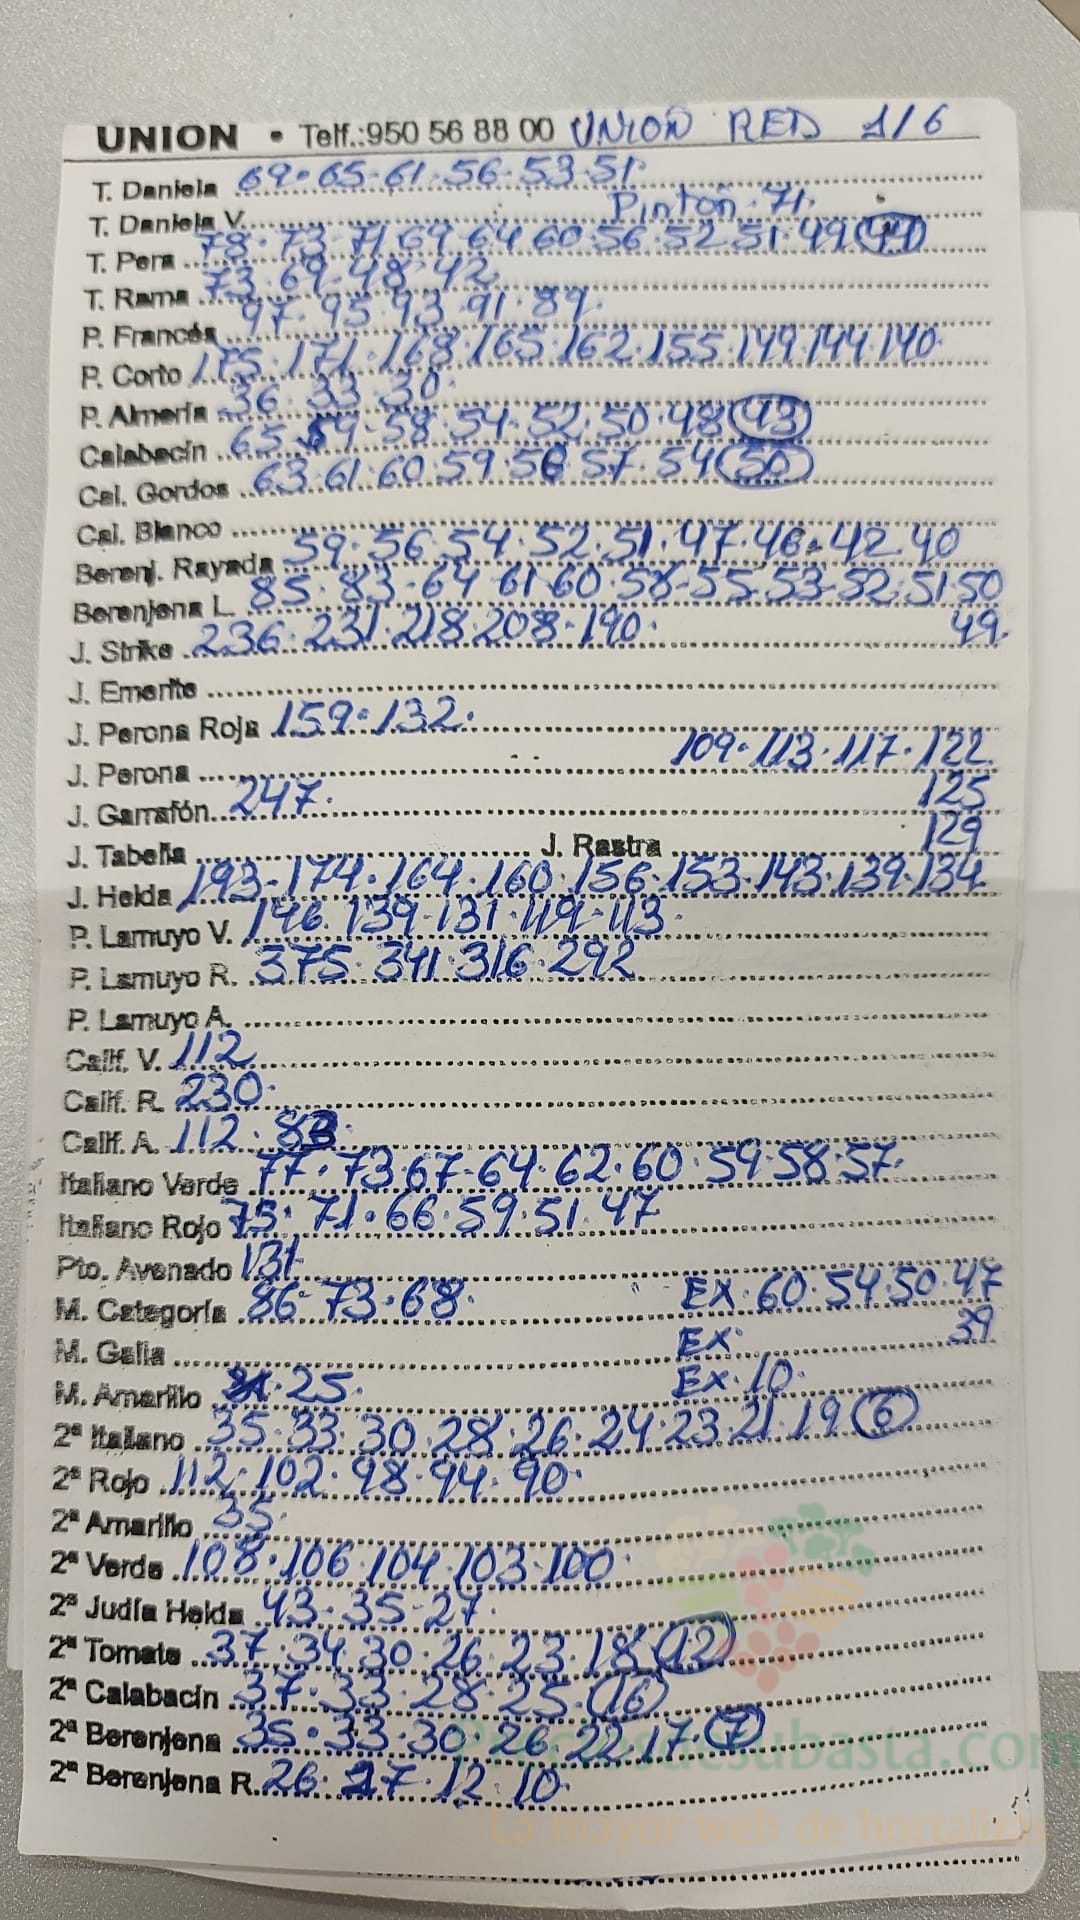 UNION • Telf.:950 56 88 00 UNION RED 1/6
T. Daniela 69·65·61·56·53·51·
T. Daniela V. Pintón·71·
T. Pera 78·73·71·69·64·60·56·52·51·49 (44)
T. Rama 73·69·48·42
P. Francés 97·95·93·91·89·
P. Corto 175·171·168·165·162·155·149·144·140·
P. Almería 36·33·30·
Calabacín 65·59·58·54·52·50·48 (43)
Cal. Gordos 63·61·60·59·58·57·54 (50)
Cal. Blanco
Berenj. Rayada 59·56·54·52·51·47·46·42·40
Berenjena L. 85·83·64·61·60·58·55·53·52·51·50
49·
J. Strike 236·231·218·208·190·
J. Emerite
J. Perona Roja 159·132·
J. Perona 109·113·117·122
J. Garrafón 247· 125
129
J. Tabella J. Rastra
J. Helda 193·174·164·160·156·153·143·139·134
P. Lamuyo V. 146·139·131·119·113·
P. Lamuyo R. 375·341·316·292
P. Lamuyo A.
Calif. V. 112
Calif. R. 230·
Calif. A. 112·83·
Italiano Verde 77·73·67·64·62·60·59·58·57·
Italiano Rojo 75·71·66·59·51·47
Pto. Asenado 131
M. Categoría 86·73·68· EX·60·54·50·47
M. Galia EX· 39
M. Amarillo 25· Ex·10·
2ª Italiano 35·33·30·28·26·24·23·21·19 (6)
2ª Rojo 112·102·98·94·90·
2ª Amarillo 35·
2ª Verde 108·106·104·103·100·
2ª Judía Helda 43·35·27·
2ª Tomate 37·34·30·26·23·18 (12)
2ª Calabacín 37·33·28·25· (16)
2ª Berenjena 35·33·30·26·22·17· (7)
2ª Berenjena R. 26·27·12·10·
Preciosdesubasta.com
La mayor web de hortalizas